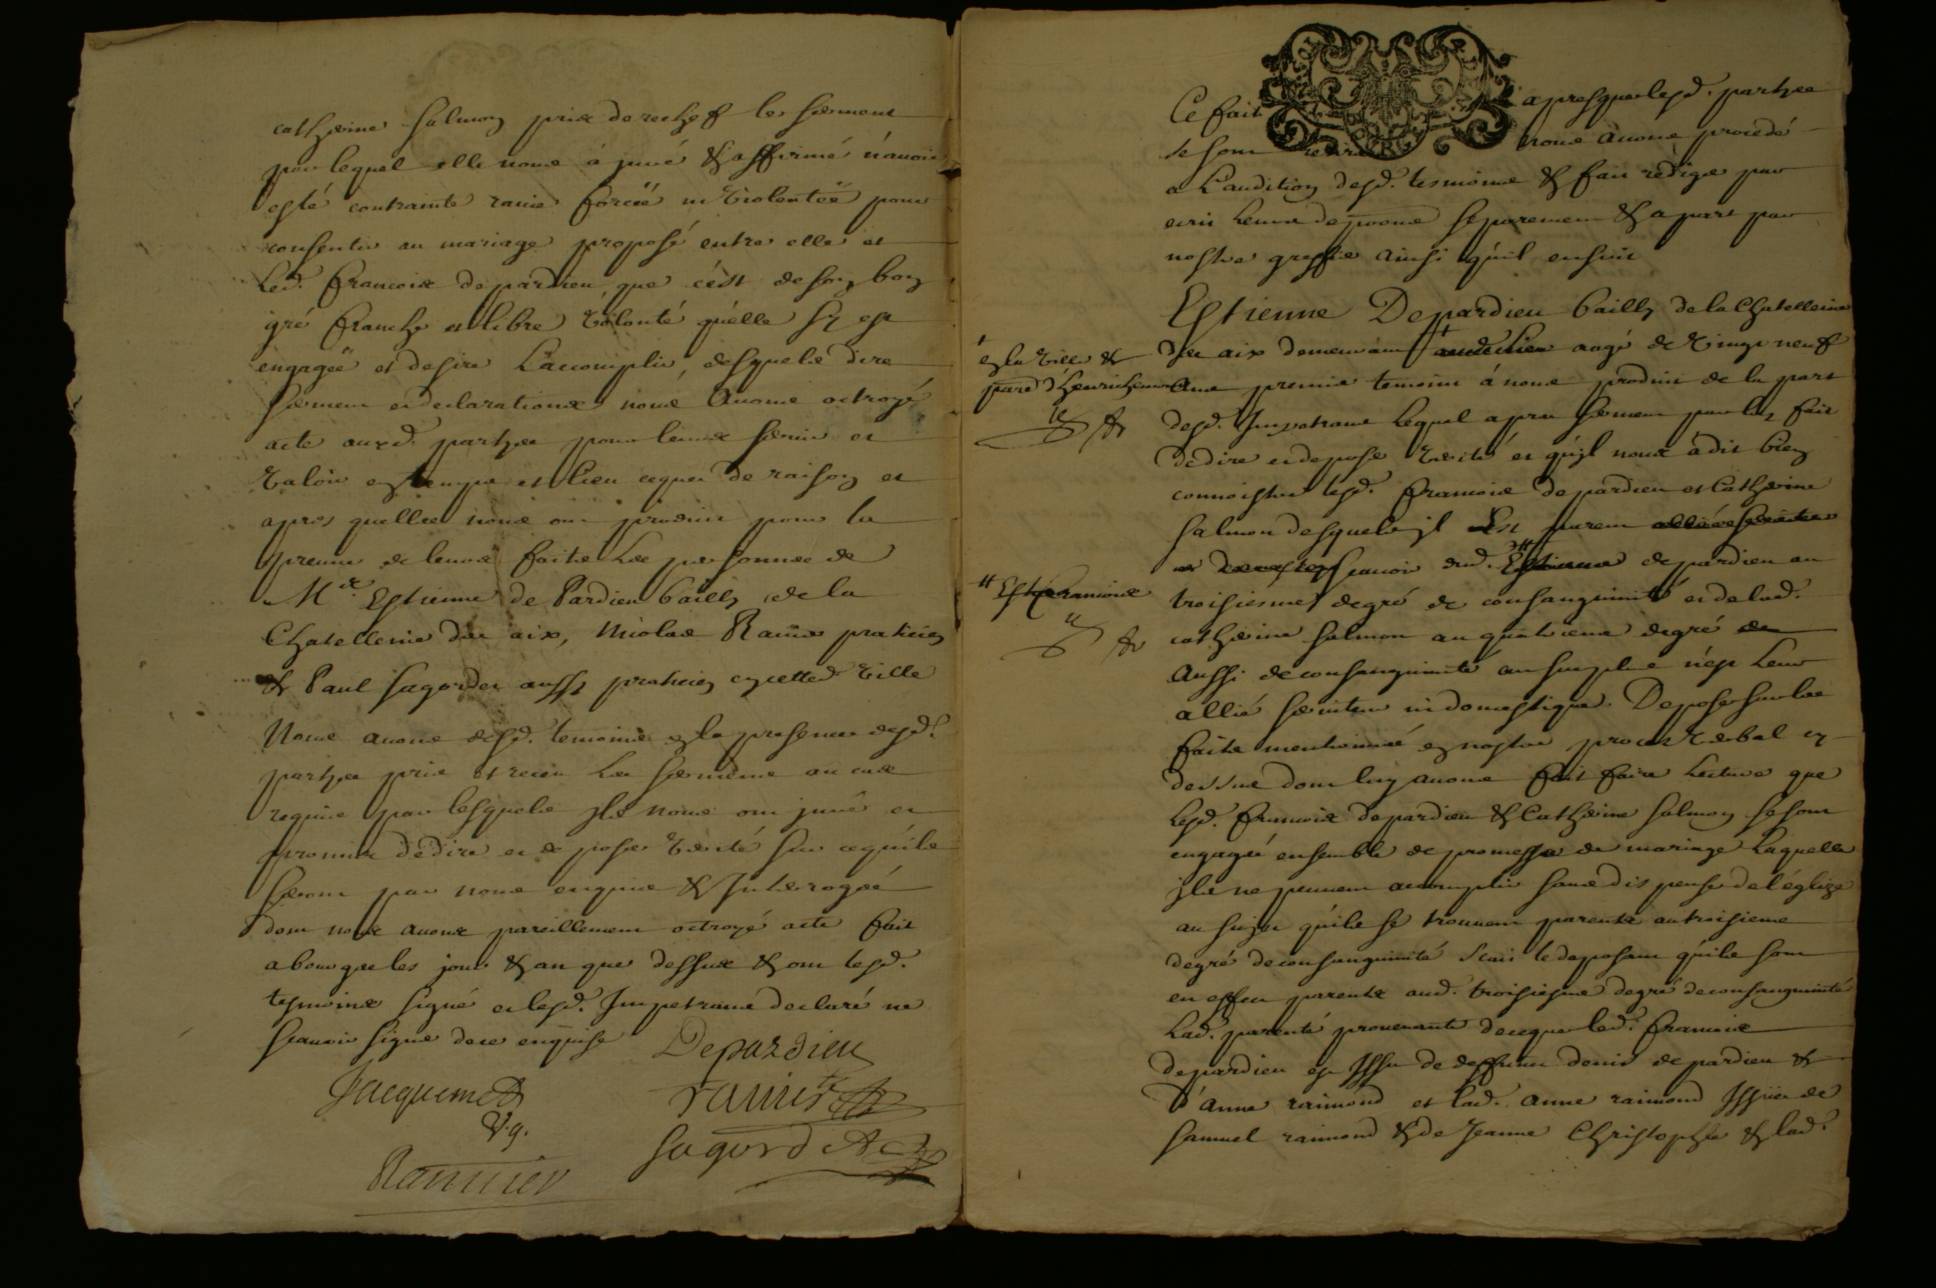 catherine Salmon prix derechef le serment
par lequel elle nous à juré & affirmé n'auoir
esté contrainte rauie forcée ni violentée pour
consentir au mariage proposé entre elle et
led. francois depardieu que c'est de son bon
gré franche et libre volonté qu'elle s'y est
engagée et desire l'accomplir, desquels dire
serment et declarations nous auons octroyé
acte auxd. parties pour leurs seruir et
valoir en temps et lieu ce que de raison et
apres quelles nous ont produit pour la
preuue de leurs faits les personnes de
Me. Estienne de Pardieu bailly de la
Chatellenie des aix, Nicolas praticien
& Paul Sagordet aussy praticien en cette ville
Nous auons desd. temoins en la presence desd.
parties pris et receu les serments au cas
requis par lesquels ils nous ont juré et
promis de dire et deposer verité sur ce qu'ils
seront par nous enquis & Interrogés
dont nous auons pareillement octroyé acte fait
a bourges les jour & an que dessus & ont lesd.
tesmoins signé et lesd. Impetrans declaré ne
scauoir signer de ce enquis
Depardieu
Jacquemet
V.g.
Sagordet
Ce fait apres que lesd. parties
se sont retirés nous auons procedé
a L'audition desd. tesmoins & fait rediger par
ecrit leurs depositions separement & a part par
nostre greffier ainsi qu'il ensuit
Estienne Depardieu bailly de la Chatellenie
des aix demeurant audit lieu aagé de vingt neuf
en la ville &
parc d'henrichemont
ans premier temoin à nous produit de la part
desd. Impetrans lequel apres serment par luy fait
de dire et deposer verité et qu'il nous à dit bien
connoistre lesd. francois depardieu et Catherine
Salmon desquels il Est parent
scauoir dud. Estienne depardieu au
francois
troisiesme degré de consanguinité et de lad.
catherine Salmon au quatrieme degré
Aussi de consanguinité au surplus n'est leur
allié seruiteur ni domestique. Depose sur les
faits mentionnés en nostre procez verbal cy
dessus dont luy auons fait faire lecture que
lesd. francois depardieu & Catherine Salmon se sont
engagés ensemble de promesse de mariage laquelle
ils ne peuuent accomplir sans dispense de l'église
au sujet qu'ils se trouuent parents au troisieme
degré de consanguinité scait le deposant qu'ils sont
en effet parents aud. troisiesme degré de consanguinité
Lad. parenté prouenante de ce que led. francois
depardieu est Issu de deffunt denis de pardieu &
d'anne raimond et lad. anne raimond Issüe de
samuel raimond & de Jeanne Christophe & lad.